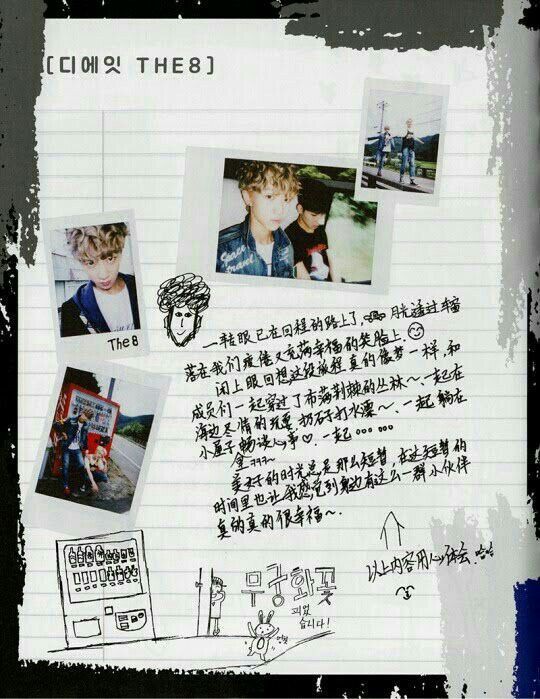 [디에잇 THE8]
The 8
一转眼已在回程的路上了, 月光透过车窗
落在我们疲倦又充满幸福的笑脸上.
闭上眼回想这段旅程真的像梦一样, 和
成员们一起穿过了布满荆棘的丛林~, 一起在
海边尽情的玩耍 扔石子打水漂~, 一起躺在
小屋子畅谈心事♡, 一起……
美好的时光总是那么短暂, 在这短暂的
时间里也让我感觉到身边有这么一群小伙伴
真的真的很幸福~.
以上内容用心体会.
무궁화꽃
피었
습니다!